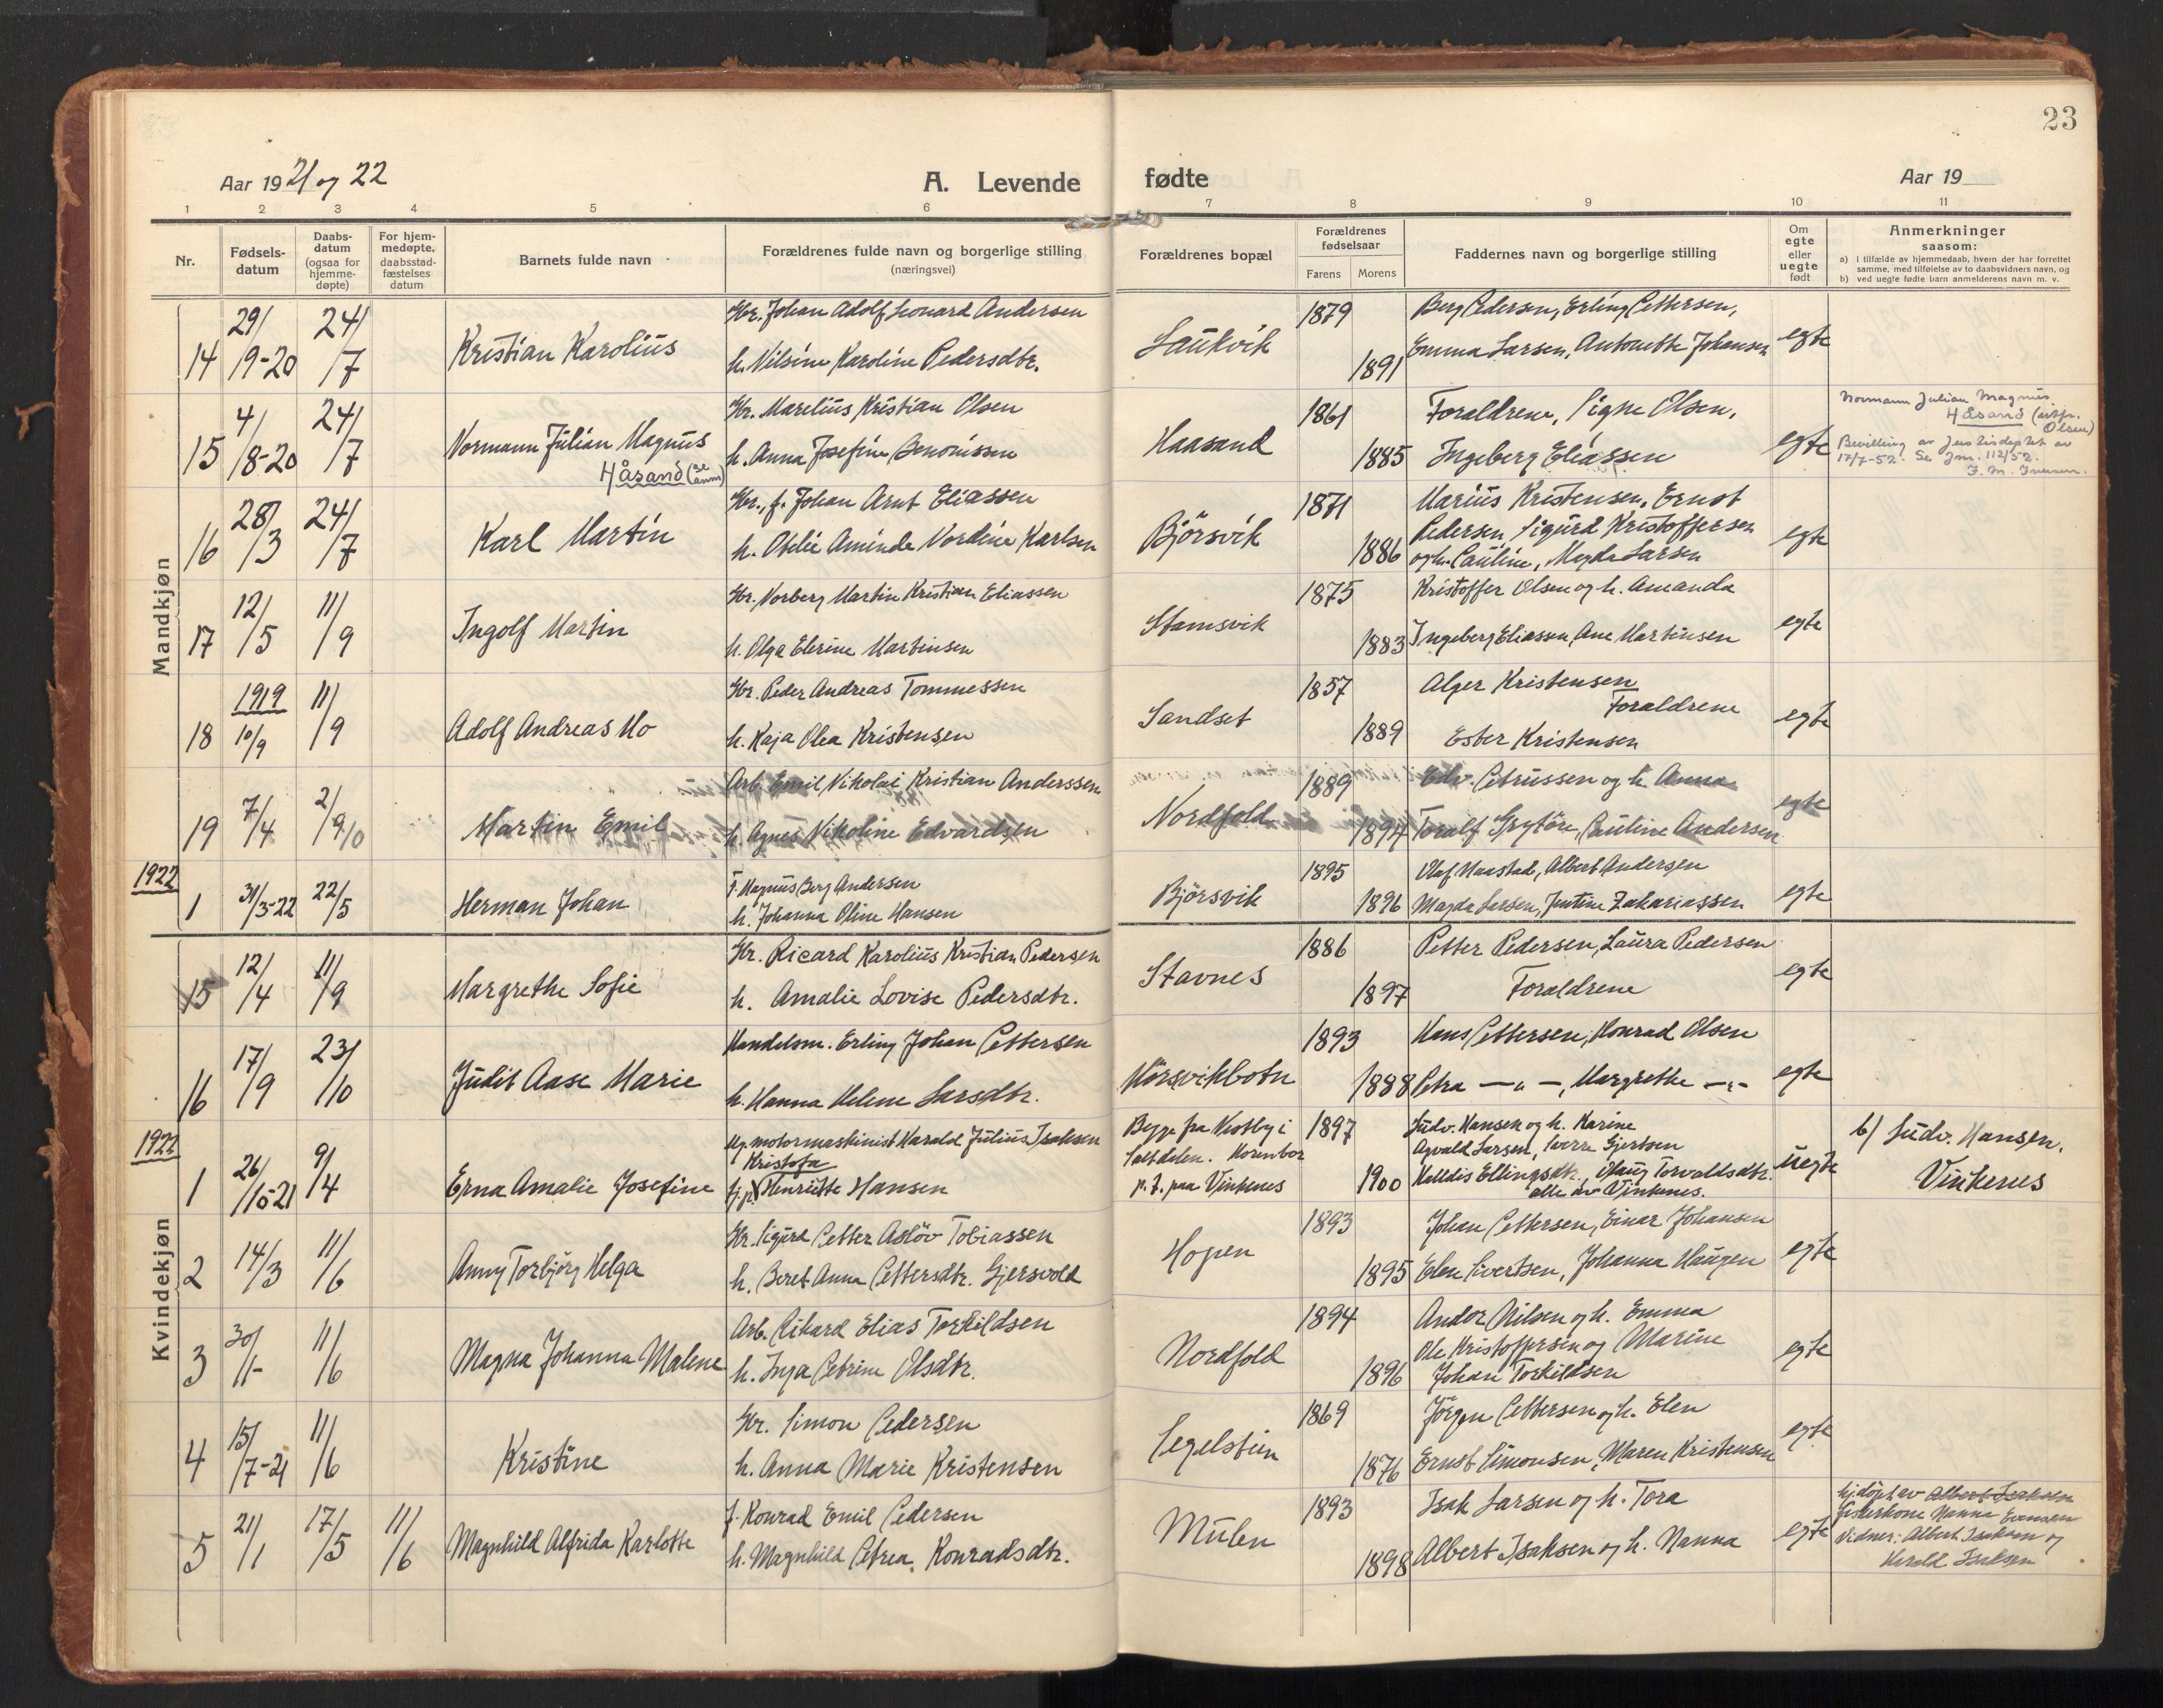 23
Aar 1921 og 22
A. Levende fødte
Aar 19
1 2 3 4 5 6 7 8 9 10 11
Nr.
Fødsels-
datum
Daabs-
datum
(ogsaa for
hjemme-
døpte)
For hjem-
medøpte,
daabsstad-
fæstelses
datum
Barnets fulde navn
Forældrenes fulde navn og borgerlige stilling
(næringsvei)
Forældrenes bopæl
Forældrenes
fødselsaar
Farens Morens
Faddernes navn og borgerlige stilling
Om
egte
eller
uegte
født
Anmerkninger
saasom:
a) i tilfælde av hjemmedaab, hvem der har forrettet
samme, med tilføielse av to daabsvidners navn, og
b) ved uegte fødte barn anmelderens navn m. v.
Mandkjøn
14 29/9-20 24/7 Kristian Karolius
Gbr. Johan Adolf Leonard Andersen
h. Nilsine Karoline Pedersdtr.
Laukvik 1879 1891
Berg Pedersen, Erling Pettersen,
Emma Larsen, Antonette Johansen
egte
15 4/8-20 24/7 Normann Julian Magnus
Håsand (se anm)
Gbr. Marelius Kristian Olsen
h. Anna Josefine Benonissen
Haasand 1861 1885
Foraldrene, Signe Olsen,
Ingeberg Eliassen
egte
Normann Julian Magnus
Håsand (istf.
Olsen)
Bevilling av Justisdeptet av
17/7-52. Se Jnr. 112/52.
16 28/3 24/7 Karl Martin
Gbr., f. Johan Arnt Eliassen
h. Otelie Aminda Nordine Karlsen
Björsvik 1871 1886
Marius Kristensen, Ernst
Pedersen, Sigurd Kristoffersen
og h. Pauline, Magda Larsen
egte
17 12/5 11/9 Ingolf Martin
Gbr. Norberg Martin Kristian Eliassen
h. Olga Elerine Martinsen
Stamsvik 1875 1883
Kristoffer Olsen og h. Amanda
Ingeberg Eliassen, Ane Martinsen
egte
18 1919 10/9 11/9 Adolf Andreas Mo
Gbr. Peder Andreas Tommessen
h. Kaja Olea Kristensen
Sandset 1857 1889
Alger Kristensen
Foraldrene
Ester Kristensen
egte
19 7/4 2/10 Martin Emil
Arb. Emil Nikolai Kristian Anderssen
h. Agnes Nikoline Edvardsen
Nordfold 1889 1894
Edv. Petrussen og h. Anna
Toralf Grytöre, Pauline Andersen
egte
1922
1 31/3-22 22/5 Herman Johan
F. Magnus Berg Andersen
h. Johanna Oline Hansen
Björsvik 1895 1896
Olaf Naastad, Albert Andersen
Magda Larsen, Justine Zakariassen
egte
Kvindekjøn
15 12/4 11/9 Margrethe Sofie
Gbr. Ricard Karolius Kristian Pedersen
h. Amalie Lovise Pedersdtr.
Stavnes 1886 1897
Petter Pedersen, Laura Pedersen
Foraldrene
egte
16 17/9 23/10 Judit Aase Marie
Handelsm. Erling Johan Pettersen
h. Hanna Helene Larsdtr.
Mörsvikbotn 1893 1888
Hans Pettersen, Konrad Olsen
Petra —„—, Margrethe —„—
egte
1922
1 26/10-21 9/4 Erna Amalie Josefine
Ug. motormaskinist Harald Julius Isaksen
Kristofa
tj.p. Henriette Hansen
Begge fra Vestby i
Saltdalen. Moren bor
p. t. paa Vinkenes
1897 1900
Ludv. Hansen og h. Karine
Agvald Larsen, Sverre Gjertsen
Halldis Ellingsdtr., Olaug Torvaldsdtr.
alle av Vinkenes.
uegte
b) Ludv. Hansen,
Vinkenes
2 14/3 11/6 Anny Torbjörg Helga
Gbr. Sigurd Petter Aslöv Tobiassen
h. Beret Anna Pettersdtr. Gjersvold
Hopen 1893 1895
Johan Pettersen, Einar Johansen
Elen Sivertsen, Johanna Haugen
egte
3 30/1- 11/6 Magna Johanna Malene
Arb. Rikard Elias Torkildsen
h. Inga Petrine Olsdtr.
Nordfold 1894 1896
Andor Nilsen og h. Emma
Ole Kristoffersen og Marine
Johan Torkildsen
egte
4 15/7-21 11/6 Kristine
Gbr. Simon Pedersen
h. Anna Marie Kristensen
Segelstein 1869 1876
Jörgen Pettersen og h. Elen
Ernst Simonsen, Maren Kristensen
egte
5 21/1 17/5 11/6 Magnhild Alfrida Karlotte
f. Konrad Emil Pedersen
h. Magnhild Petrea Konradsdtr.
Mulen 1893 1898
Isak Larsen og h. Tora
Albert Isaksen og h. Nanna
egte
hj.döpt av Albert Isaksen
fiskerkone Nanna Evensen
Vidner: Albert Isaksen og
Harald Isaksen